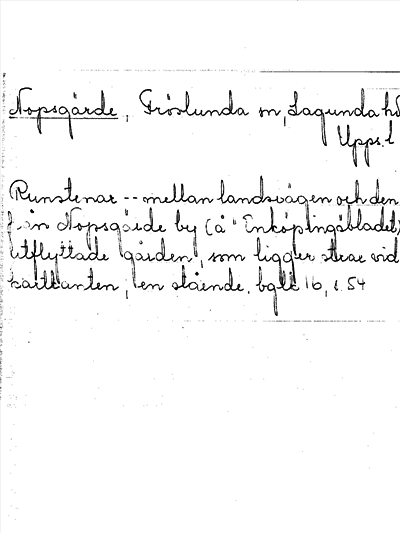 Nopsgärde, Fröslunda sn, Lagunda hd
Upps. l
Runstenar -- mellan landsvägen och den
från Nopsgärde by (å "Enköpingsbladet)
utflyttade gården, som ligger strax vid
kartkanten, en stående, bqlt 16, s. 54